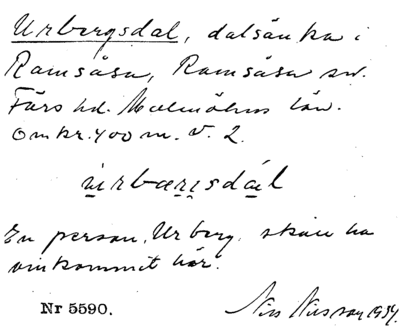 Urbergsdal, dalsänka i
Ramsåsa, Ramsåsa sn.
Färs hd. Malmöhus län.
Omkr. 400 m. V. 2.
En person, Urberg, skall ha
omkommit här.
Nr 5590. Nils Nilsson 1934.